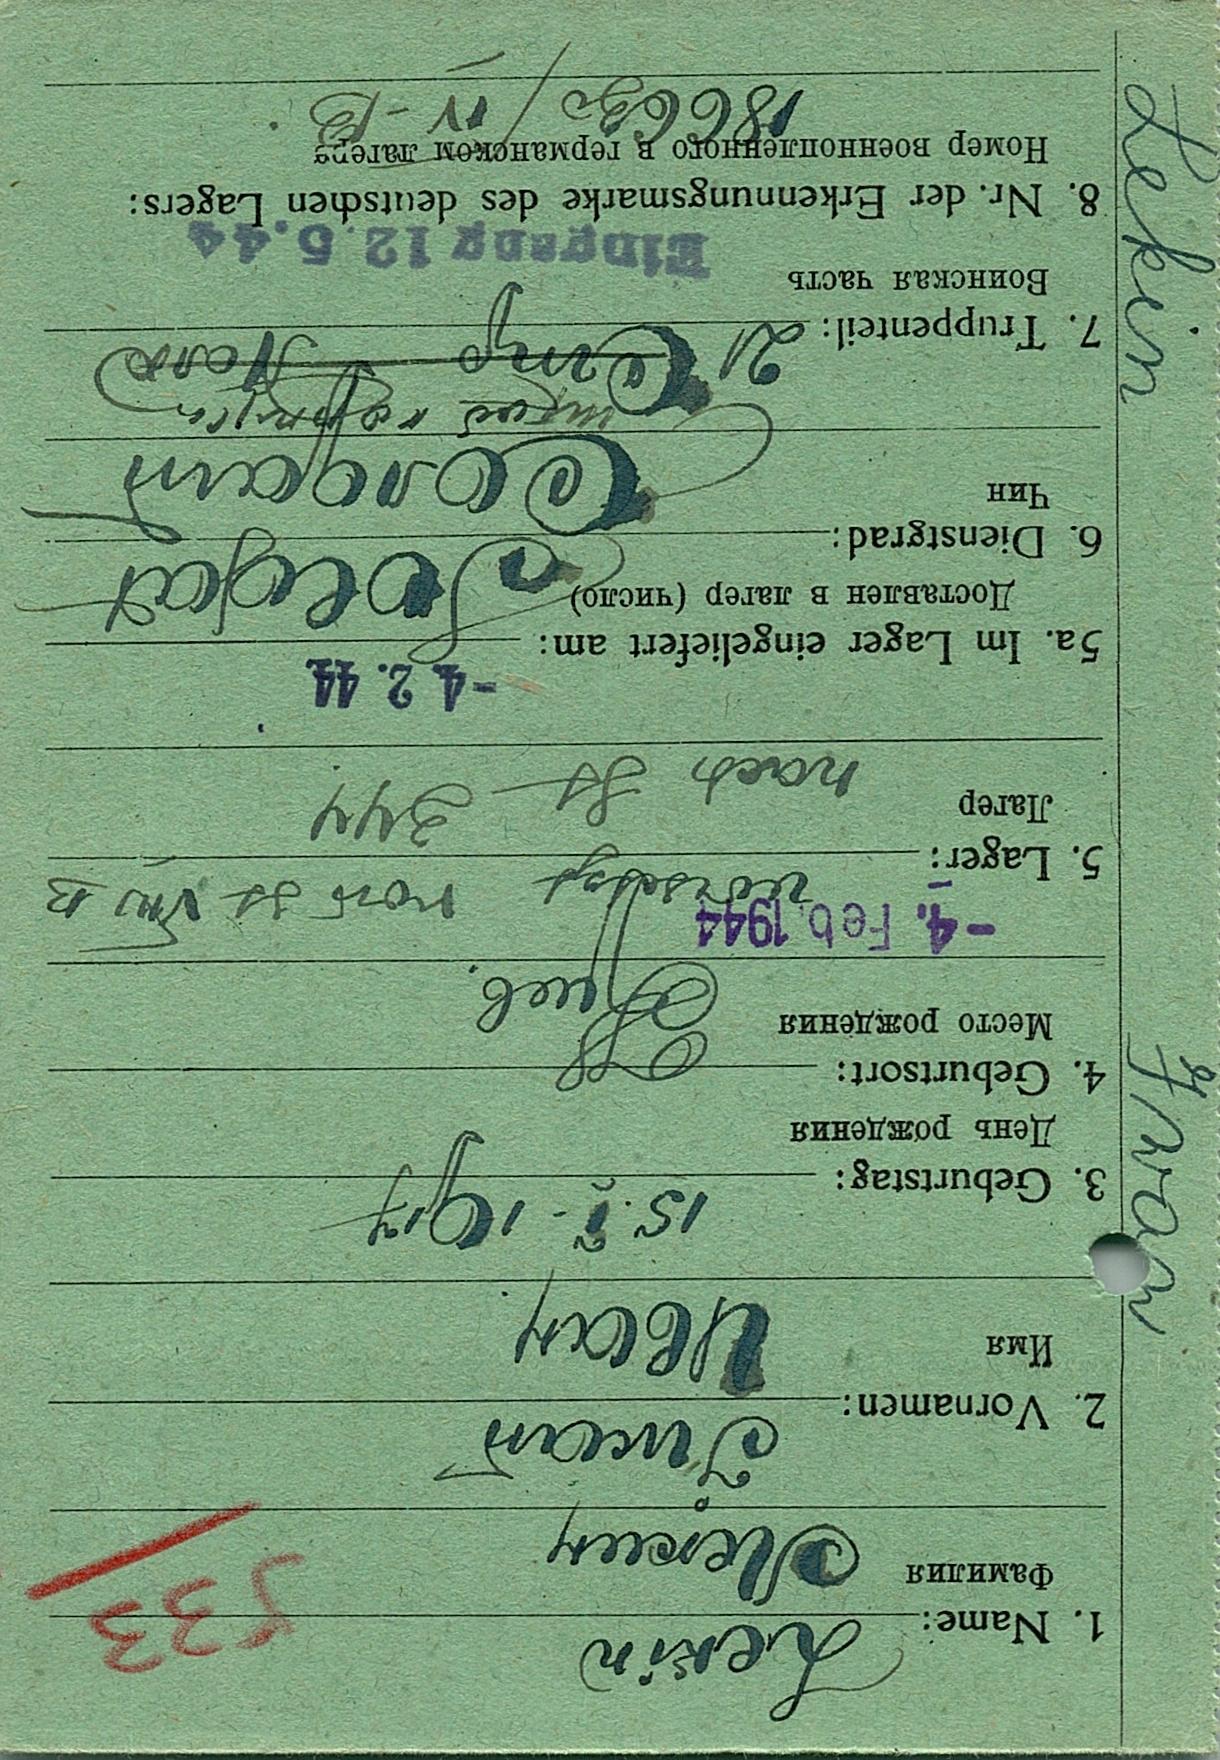 Lekin Iwan
533
Lekin
1. Name:
Фамилия
Лекин
Iwan
2. Vornamen:
Имя
Иван
3. Geburtstag: 15. I - 1917
День рождения
4. Geburtsort:
Место рождения
Киев.
-4. Feb. 1944
von St VIII B
5. Lager:
Лагер
nach St 344
-4. 2. 44
5a. Im Lager eingeliefert am:
Доставлен в лагер (число)
Soldat
6. Dienstgrad:
Чин
Солдат
7. Truppenteil: 21
Воинская часть
Eingang 12. 5. 44
8. Nr. der Erkennungsmarke des deutschen Lagers:
Номер военнопленного в германском лагере
/ IV - B